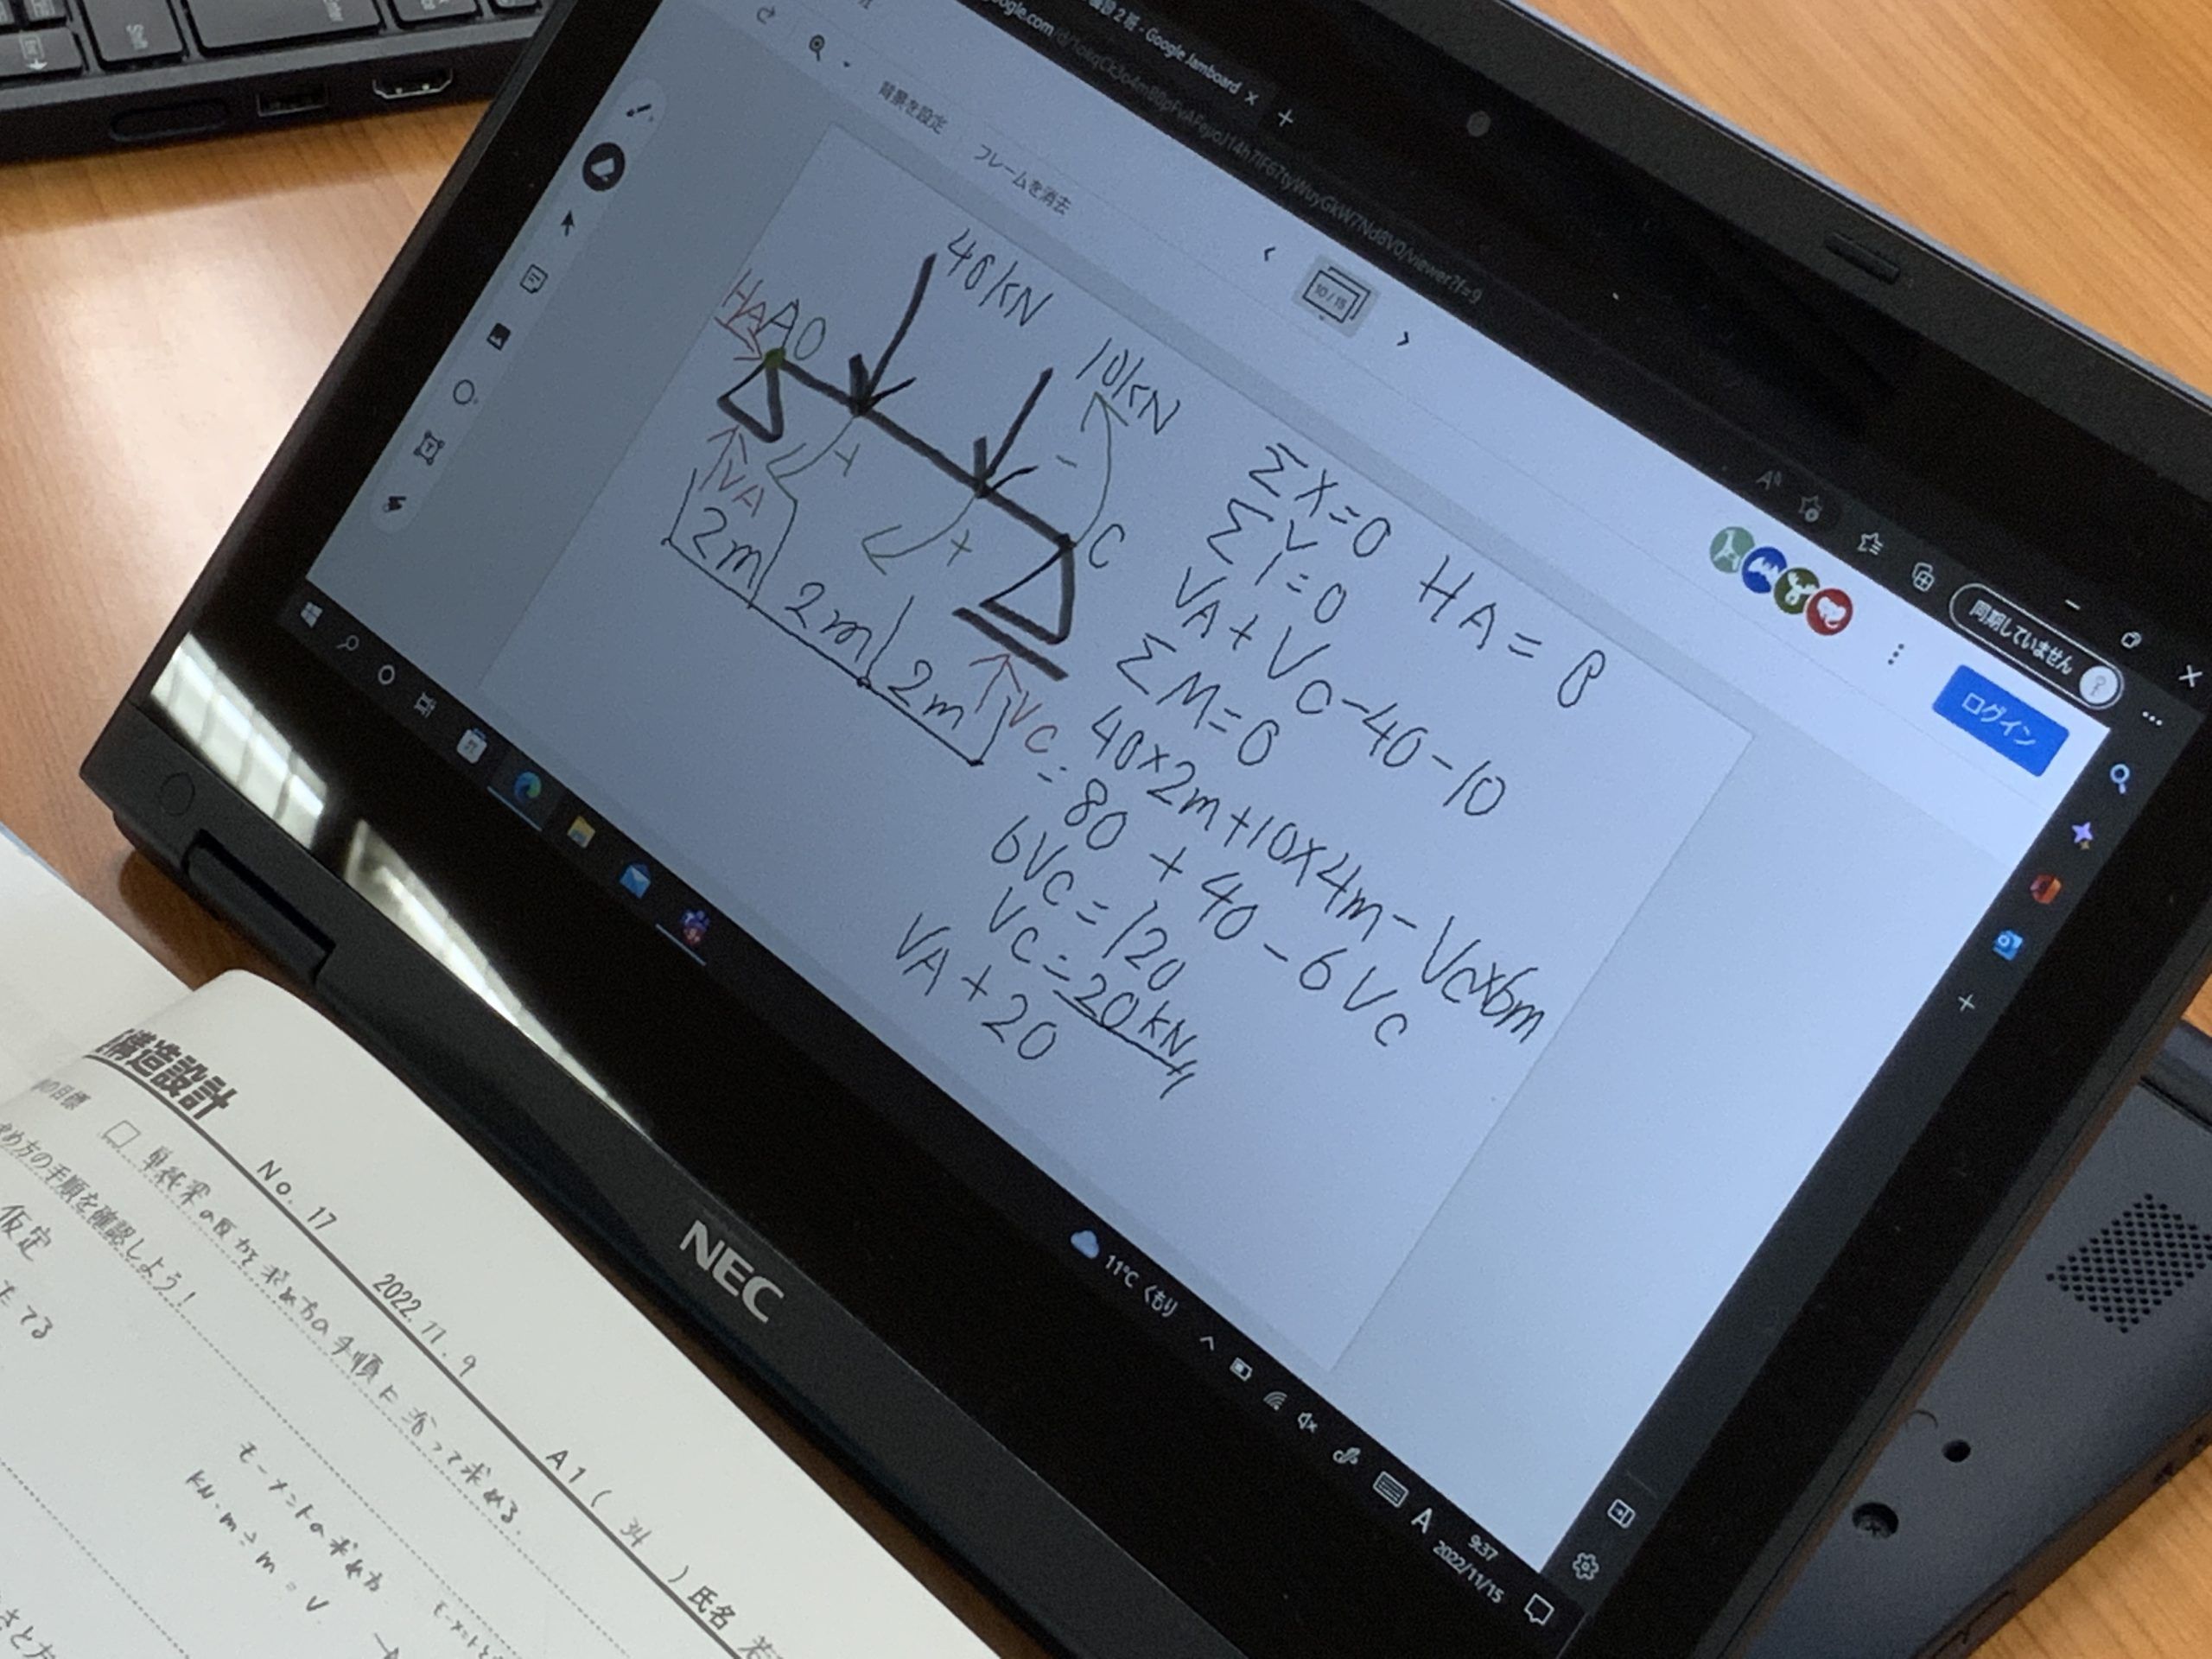 Google Jamboard
背景を設定
フレームを消去
10 / 15
同期していません
ログイン
40kN
10kN
HA
A
O
+
-
VA
+
C
2m
2m
2m
VC
ΣX=0 HA=0
ΣY=0
VA+VC-40-10
ΣM=0
40×2m+10×4m-VC×6m
=80+40-6VC
6VC=120
VC=20kN
VA+20
11℃ くもり
A
9:37
2022/11/15
NEC
構造設計
No. 17
2022.11.9
A1 ( 34 ) 氏名
の目標
□ 単純梁の反力を求め方の手順に沿って求める。
め方の手順を確認しよう！
仮定
てる
モーメントの求め方
kN・m÷m=V